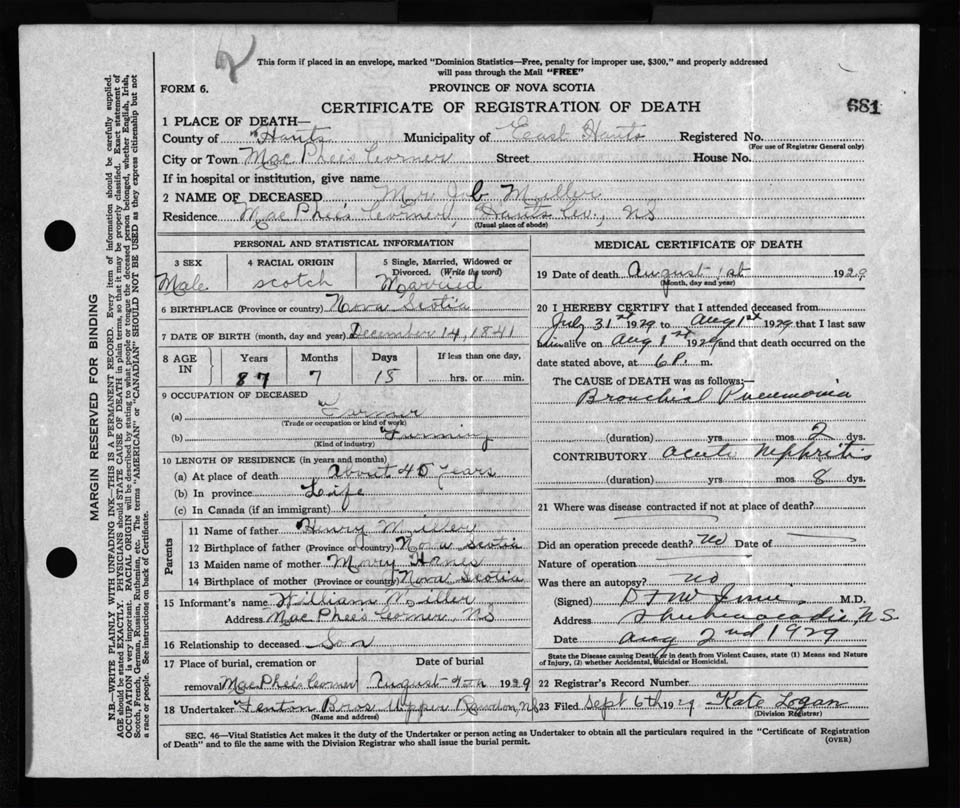 2
This form if placed in an envelope, marked "Dominion Statistics—Free, penalty for improper use, $300," and properly addressed
will pass through the Mail "FREE"
FORM 6.
PROVINCE OF NOVA SCOTIA
CERTIFICATE OF REGISTRATION OF DEATH
681
1 PLACE OF DEATH—
County of Hants Municipality of East Hants Registered No.
(For use of Registrar General only)
City or Town MacPhee's Corner Street House No.
If in hospital or institution, give name
2 NAME OF DECEASED Mr Miller
Residence MacPhee's Corner, Hants Co., NS
(Usual place of abode)
PERSONAL AND STATISTICAL INFORMATION
3 SEX 4 RACIAL ORIGIN 5 Single, Married, Widowed or
Divorced. (Write the word)
Male scotch Married
6 BIRTHPLACE (Province or country) Nova Scotia
7 DATE OF BIRTH (month, day and year) December 14, 1841
8 AGE IN Years Months Days If less than one day,
87 7 18 hrs. or min.
9 OCCUPATION OF DECEASED
(a) Farmer
(Trade or occupation or kind of work)
(b) Farming
(Kind of industry)
10 LENGTH OF RESIDENCE (in years and months)
(a) At place of death About 40 years
(b) In province Life
(c) In Canada (if an immigrant)
Parents
11 Name of father Henry Miller
12 Birthplace of father (Province or country) Nova Scotia
13 Maiden name of mother Mary
14 Birthplace of mother (Province or country) Nova Scotia
15 Informant's name William Miller
Address MacPhee's Corner, NS
16 Relationship to deceased Son
17 Place of burial, cremation or Date of burial
removal MacPhee's Corner August 4th 1929
18 Undertaker Fenton Bros Upper Rawdon, NS
(Name and address)
MEDICAL CERTIFICATE OF DEATH
19 Date of death August 1st 1929
(Month, day and year)
20 I HEREBY CERTIFY that I attended deceased from
July 31st 1929 to Aug 1st 1929 that I last saw
him alive on Aug 1st 1929 and that death occurred on the
date stated above, at 6 P. m.
The CAUSE OF DEATH was as follows:—
Bronchial Pneumonia
(duration) yrs. mos 2 dys.
CONTRIBUTORY acute Nephritis
(duration) yrs. mos. 8 dys.
21 Where was disease contracted if not at place of death?
Did an operation precede death? No Date of
Nature of operation
Was there an autopsy? no
(Signed) M.D.
Address Shubenacadie, N.S.
Date Aug 2nd 1929
State the Disease causing Death, or in death from Violent Causes, state (1) Means and Nature
of Injury, (2) whether Accidental, Suicidal or Homicidal.
22 Registrar's Record Number
23 Filed Sept 6th 1929 Kate Logan
(Division Registrar)
SEC. 46—Vital Statistics Act makes it the duty of the Undertaker or person acting as Undertaker to obtain all the particulars required in the "Certificate of Registration
of Death" and to file the same with the Division Registrar who shall issue the burial permit.
(OVER)
MARGIN RESERVED FOR BINDING
N.B.—WRITE PLAINLY WITH UNFADING INK—THIS IS A PERMANENT RECORD. Every item of information should be carefully supplied.
AGE should be stated EXACTLY. PHYSICIANS should STATE CAUSE OF DEATH in plain terms, so that it may be properly classified. Exact statement of
OCCUPATION is very important. RACIAL ORIGIN will be described by stating to what people or tongue the deceased person belonged, whether English, Irish,
Scotch, French, German, Russian, Ruthenian, etc. The terms "AMERICAN" or "CANADIAN" SHOULD NOT BE USED as they express citizenship but not
a race or people. See instructions on back of Certificate.